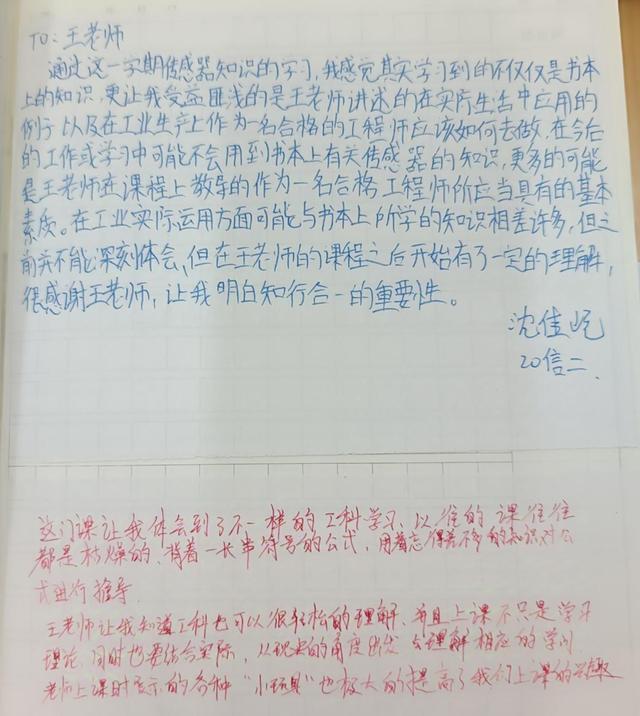 TO：王老师
通过这一学期传感器知识的学习，我感觉其实学习到的不仅仅是书本
上的知识，更让我受益匪浅的是王老师讲述的在实际生活中应用的
例子以及在工业生产上作为一名合格的工程师应该如何去做，在今后
的工作或学习中可能不会用到书本上有关传感器的知识，更多的可能
是王老师在课程上教导的作为一名合格工程师所应当具有的基本
素质。在工业实际运用方面可能与书本上所学的知识相差许多，但之
前并不能深刻体会，但在王老师的课程之后开始有了一定的理解，
很感谢王老师，让我明白知行合一的重要性。
沈佳屹
20信二
这门课让我体会到了不一样的工科学习，以往的课往往
都是枯燥的，背着一长串符号的公式，用着忘得差不多的知识对公
式进行推导
王老师让我知道工科也可以很轻松的理解，并且上课不只是学习
理论，同时也要结合实际，从现实的角度出发 去理解相应的学问
老师上课时展示的各种“小玩具”也极大的提高了我们上课的兴趣